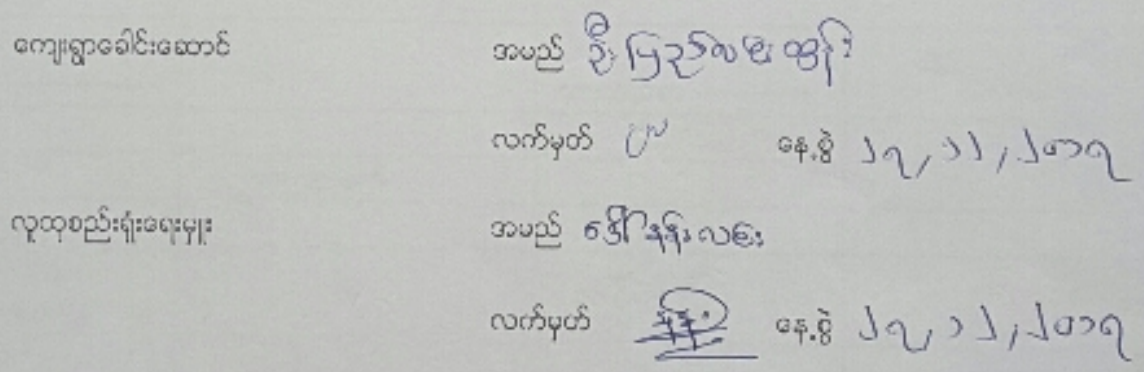 ကျေးရွာခေါင်းဆောင် အမည် ဦးပြည်လမင်းထွန်း
လက်မှတ် နေ့စွဲ ၂၇,၁၂,၂၀၁၇
လူထုစည်းရုံးရေးမှူး အမည် ဒေါ်နန်းလမင်း
လက်မှတ် နေ့စွဲ ၂၇,၁၂,၂၀၁၇